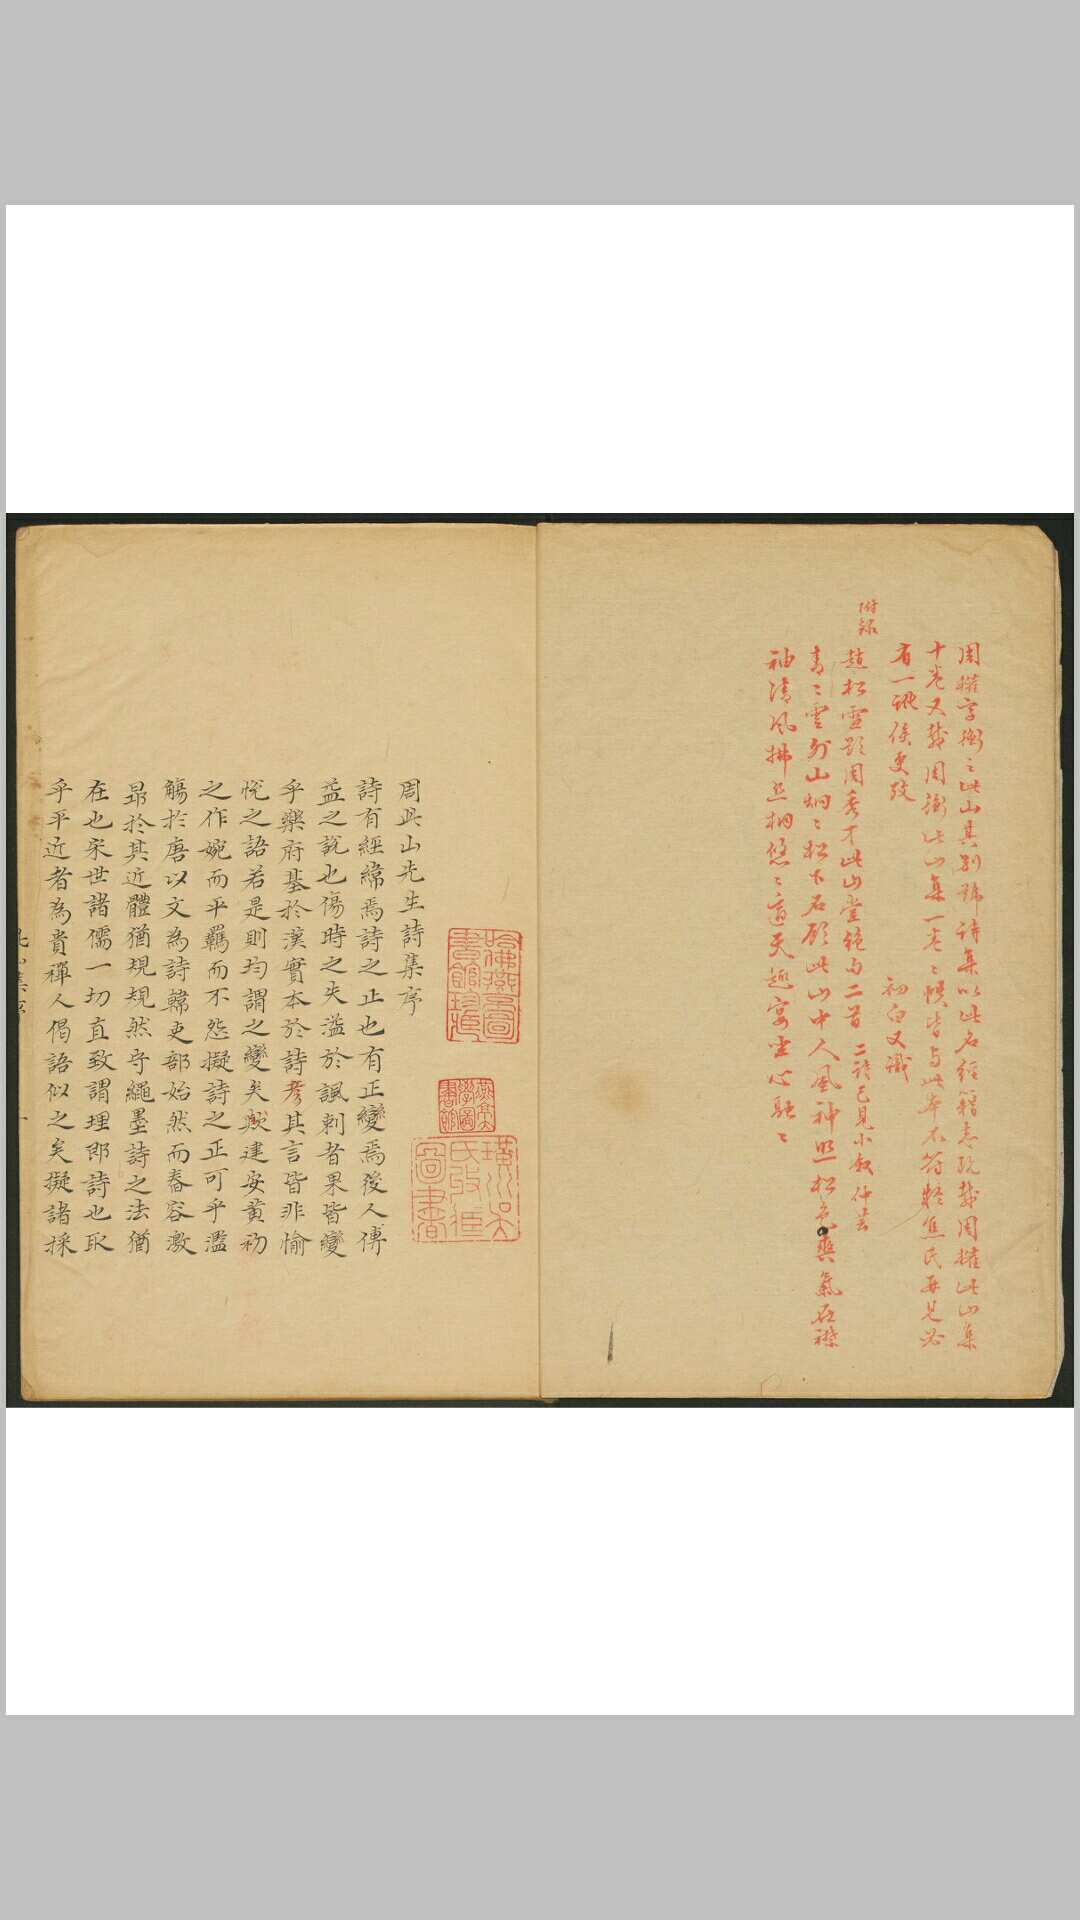 周權字衡之此山其別號詩集以此名經籍志既載周權此山集
十卷又載周衡此山集一卷〻帙皆与此本不符難焦氏再見必
有一訛俟更攷
初白又識
附錄
趙松雪題周秀才此山堂絕句二首 二詩已見小叙仲芸
青〻雲外山炯〻松下石顧此山中人風神照松色爽氣在襟
袖清風拂絲桐悠〻適天趣宴坐心融〻
哈佛燕京圖書館珍藏
燕京大學圖書館
璜川吳氏收藏圖書
周此山先生詩集序
詩有經緯焉詩之正也有正變焉後人傅
益之說也傷時之失溢於諷刺者果皆變
乎樂府基於漢實本於詩考其言皆非愉
悅之語若是則均謂之變矣歟建安黃初
之作婉而平羈而不怨擬詩之正可乎濫
觴於唐以文為詩韓吏部始然而舂容激
昻於其近體猶規規然守繩墨詩之法猶
在也宋世諸儒一切直致謂理即詩也取
乎平近者為貴禪人偈語似之矣擬諸採
此山集序
一